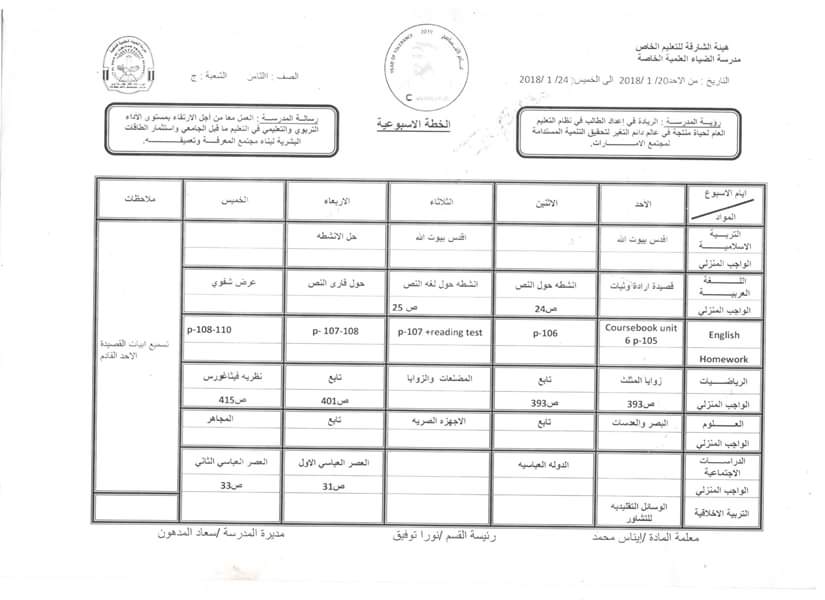 هيئة الشارقة للتعليم الخاص
مدرسة الضياء العلمية الخاصة
التاريخ : من الاحد20/ 1/ 2018 الى الخميس: 24/ 1/ 2018
الصف : الثامن الشعبة: ج
YEAR OF TOLERANCE 2019
رؤية المدرسة : الريادة في اعداد الطالب في نظام التعليم
العام لحياة منتجة في عالم دائم التغير لتحقيق التنمية المستدامة
لمجتمع الامـــــارات.
الخطة الاسبوعية
رسالة المدرسة : العمل معا من اجل الارتقاء بمستوى الاداء
التربوي والتعليمي في التعليم ما قبل الجامعي واستثمار الطاقات
البشرية لبناء مجتمع المعرفـــة
ايام الاسبوع
المواد
الاحد
الاثنين
الثلاثاء
الاربعاء
الخميس
ملاحظات
التربـــية
الاسلاميـــة
اقدس بيوت الله
اقدس بيوت الله
حل الانشطه
الواجب المنزلي
اللـــغة
العربيـــة
قصيدة ارادة وثبات
انشطه حول النص
انشطه حول لغه النص
حول قارئ النص
عرض شفوي
الواجب المنزلي
ص24
ص 25
English
Coursebook unit
6 p-105
p-106
p-107 +reading test
p- 107-108
p-108-110
Homework
تسميع ابيات القصيدة
الاحد القادم
الرياضـــيات
زوايا المثلث
تابع
المضلعات والزوايا
تابع
نظريه فيثاغورس
الواجب المنزلي
ص393
ص393
ص401
ص415
العـــلوم
البصر والعدسات
تابع
الاجهزه البصريه
تابع
المجاهر
الواجب المنزلي
الدراســـات
الاجتماعية
الدوله العباسيه
العصر العباسي الاول
العصر العباسي الثاني
الواجب المنزلي
ص31
ص33
التربية الاخلاقية
الوسائل التقليديه
للتشاور
معلمة المادة /ايناس محمد
رئيسة القسم /نورا توفيق
مديرة المدرسة /سعاد المدهون